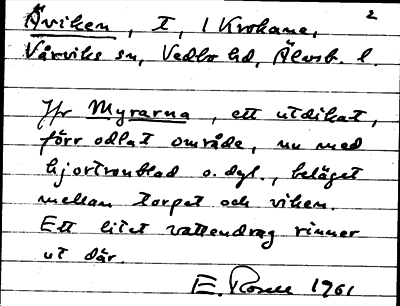 2
Åviken, T, l Krokane,
Vårviks sn, Vedbo hd, Älvsb. l.
Jfr Myrarna, ett utdikat,
förr odlat område, nu med
hjortronblad o. dyl., beläget
mellan torpet och viken.
Ett litet vattendrag rinner
ut där.
E. Rosell 1961